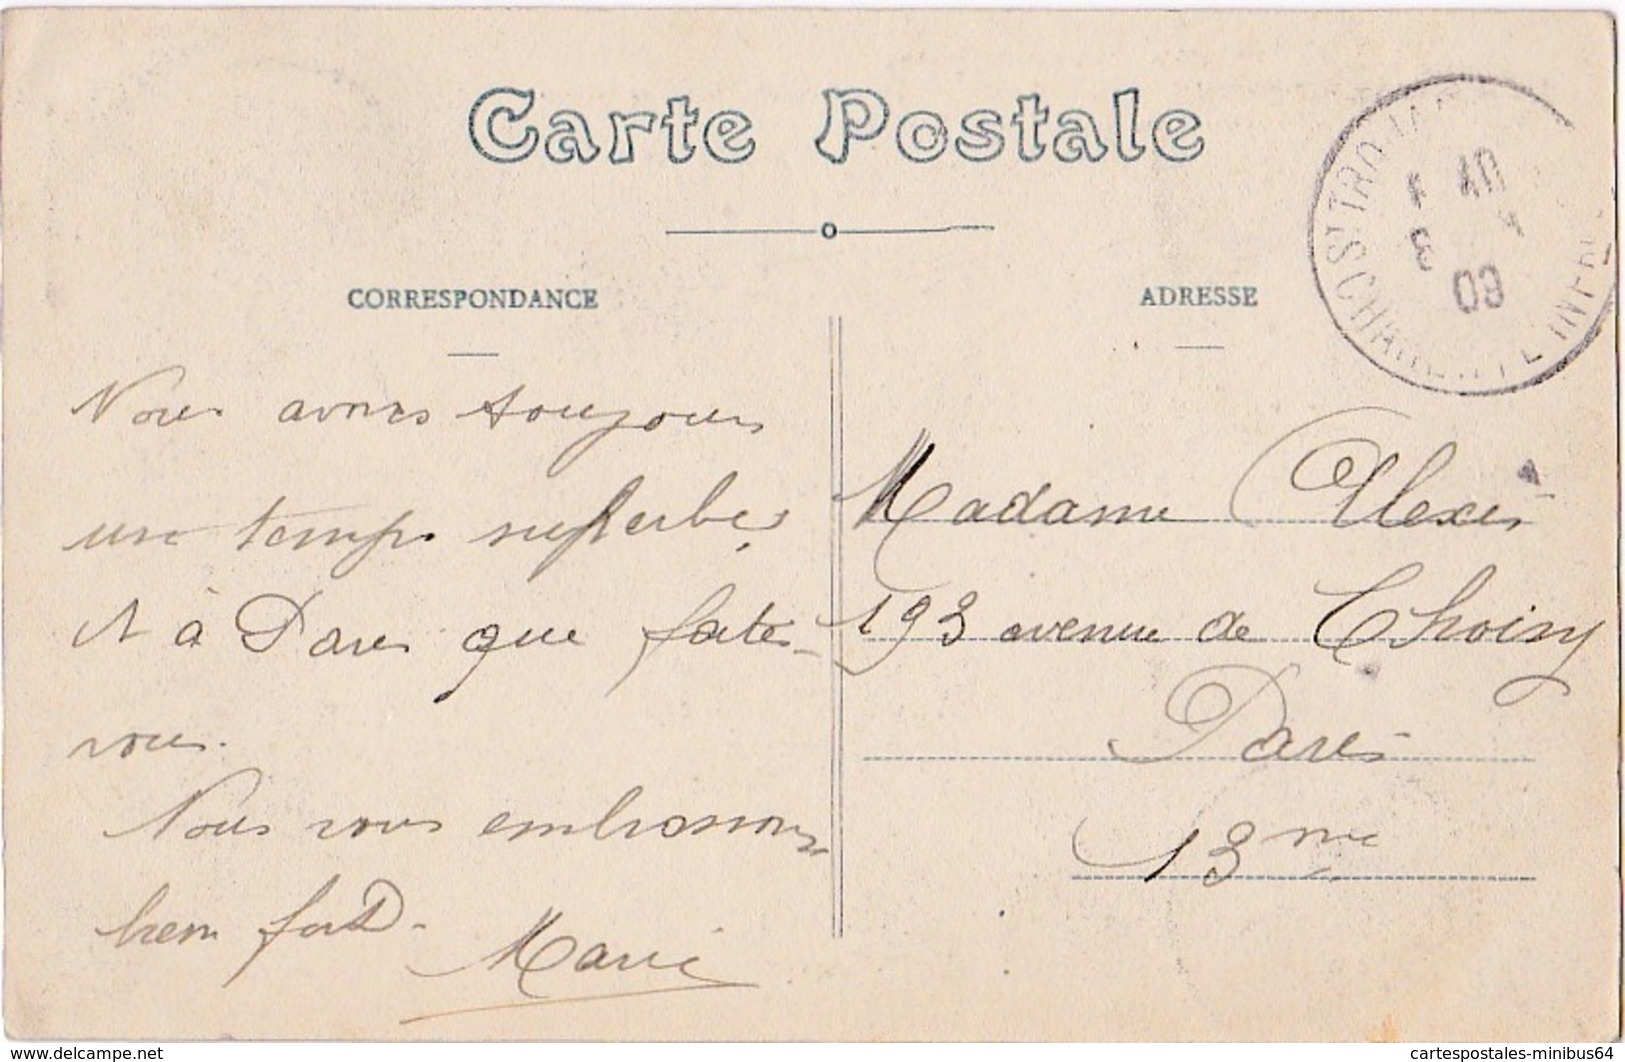 Carte Postale
CORRESPONDANCE
ADRESSE
Nous avons toujours
un temps superbe,
et à Paris que faites-
vous.
Nous vous embrassons
bien fort.
Marie
Madame Alexis
193 avenue de Choisy
Paris
13me
CHARENTE INFRE
8
09
delcampe.net
cartespostales-minibus64